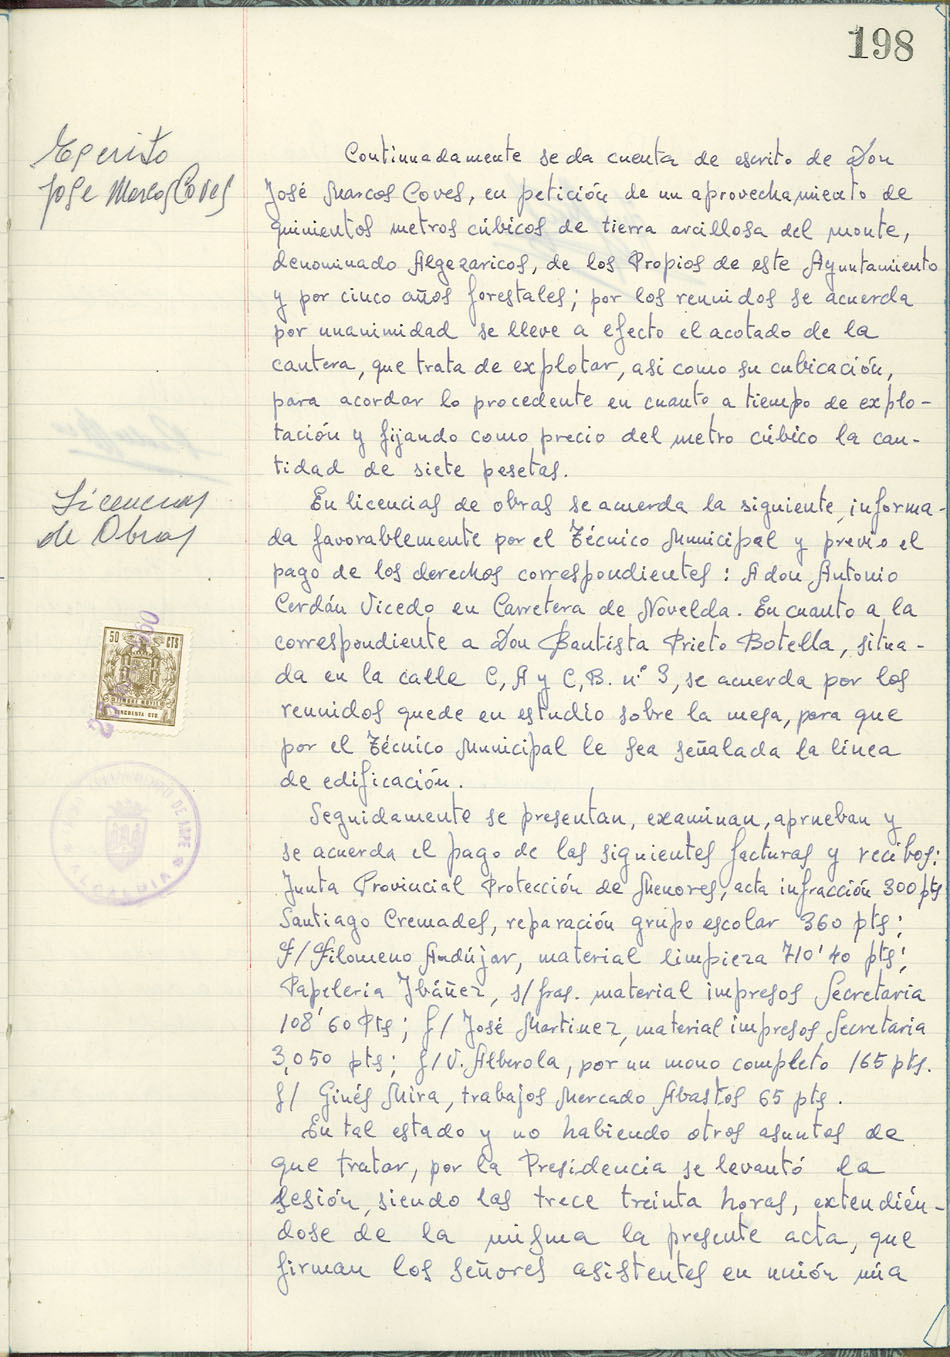 198
Escrito
Jose Marcos Coves
Continuadamente se da cuenta de escrito de Don
José Marcos Coves, en petición de un aprovechamiento de
quinientos metros cúbicos de tierra arcillosa del monte,
denominado Algezaricos, de los Propios de este Ayuntamiento
y por cinco años forestales; por los reunidos se acuerda
por unanimidad se lleve a efecto el acotado de la
cantera, que trata de explotar, asi como su cubicación,
para acordar lo procedente en cuanto a tiempo de explo-
tación y fijando como precio del metro cúbico la can-
tidad de siete pesetas.
Licencias
de Obras
En licencias de obras se acuerda la siguiente, informa-
da favorablemente por el Técnico Municipal y previo el
pago de los derechos correspondientes: A don Antonio
Cerdán Vicedo en Carretera de Novelda. En cuanto a la
correspondiente a Don Bautista Prieto Botella, situa-
da en la calle C, A y C, B. nº 3, se acuerda por los
reunidos quede en estudio sobre la mesa, para que
por el Técnico Municipal le sea señalada la línea
de edificación.
50 CTS
TIMBRE MOVIL
CINCUENTA CTS
AYUNTAMIENTO DE ASPE
ALCALDIA
Seguidamente se presentan, examinan, aprueban y
se acuerda el pago de las siguientes facturas y recibos:
Junta Provincial Protección de Menores, acta infracción 300 pts
Santiago Cremades, reparación grupo escolar 360 pts;
F/ Filomeno Andújar, material limpieza 710'40 pts;
Papeleria Ibáñez, s/ fras. material impresos Secretaria
108'60 Pts; f/ José Martinez, material impresos Secretaria
3,050 pts; f/ V. Alberola, por un mono completo 165 pts.
f/ Ginés Mira, trabajos Mercado Abastos 65 pts.
En tal estado y no habiendo otros asuntos de
que tratar, por la Presidencia se levantó la
sesión, siendo las trece treinta horas, extendién-
dose de la misma la presente acta, que
firman los señores asistentes en unión mía